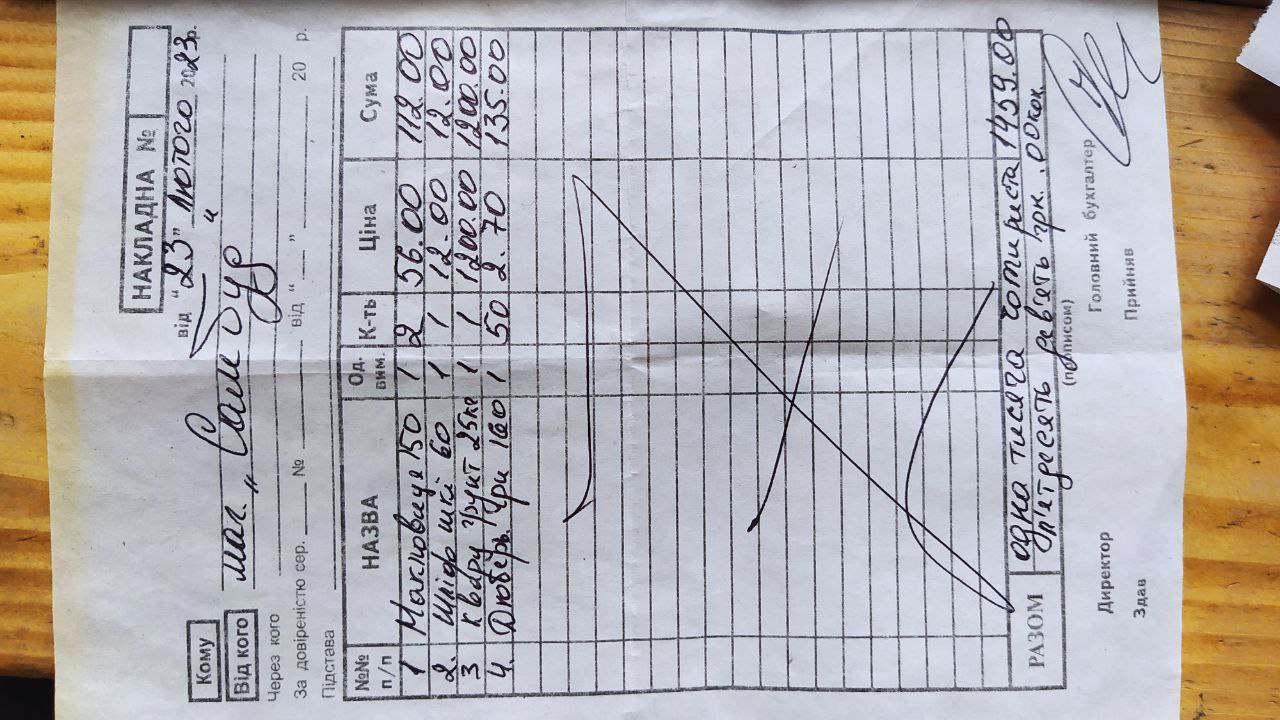 НАКЛАДНА №
від "23" лютого 2023р.
Кому "
Від кого маг. „
Через кого
За довіреністю сер. № від " " 20 р.
Підстава
№№ п/п НАЗВА Од. вим. К-ть Ціна Сума
1 150 1 2 56.00 112.00
2. Шліф шкі 60 1 1 12.00 12.00
3 Кварц грунт 25кг 1 1 1200.00 1200.00
4. Дюбель 160 1 50 2.70 135.00
РАЗОМ одна тисяча чотириста 1459.00
п'ятдесять дев'ять грн. .00коп
(прописом)
Директор Головний бухгалтер
Здав Прийняв